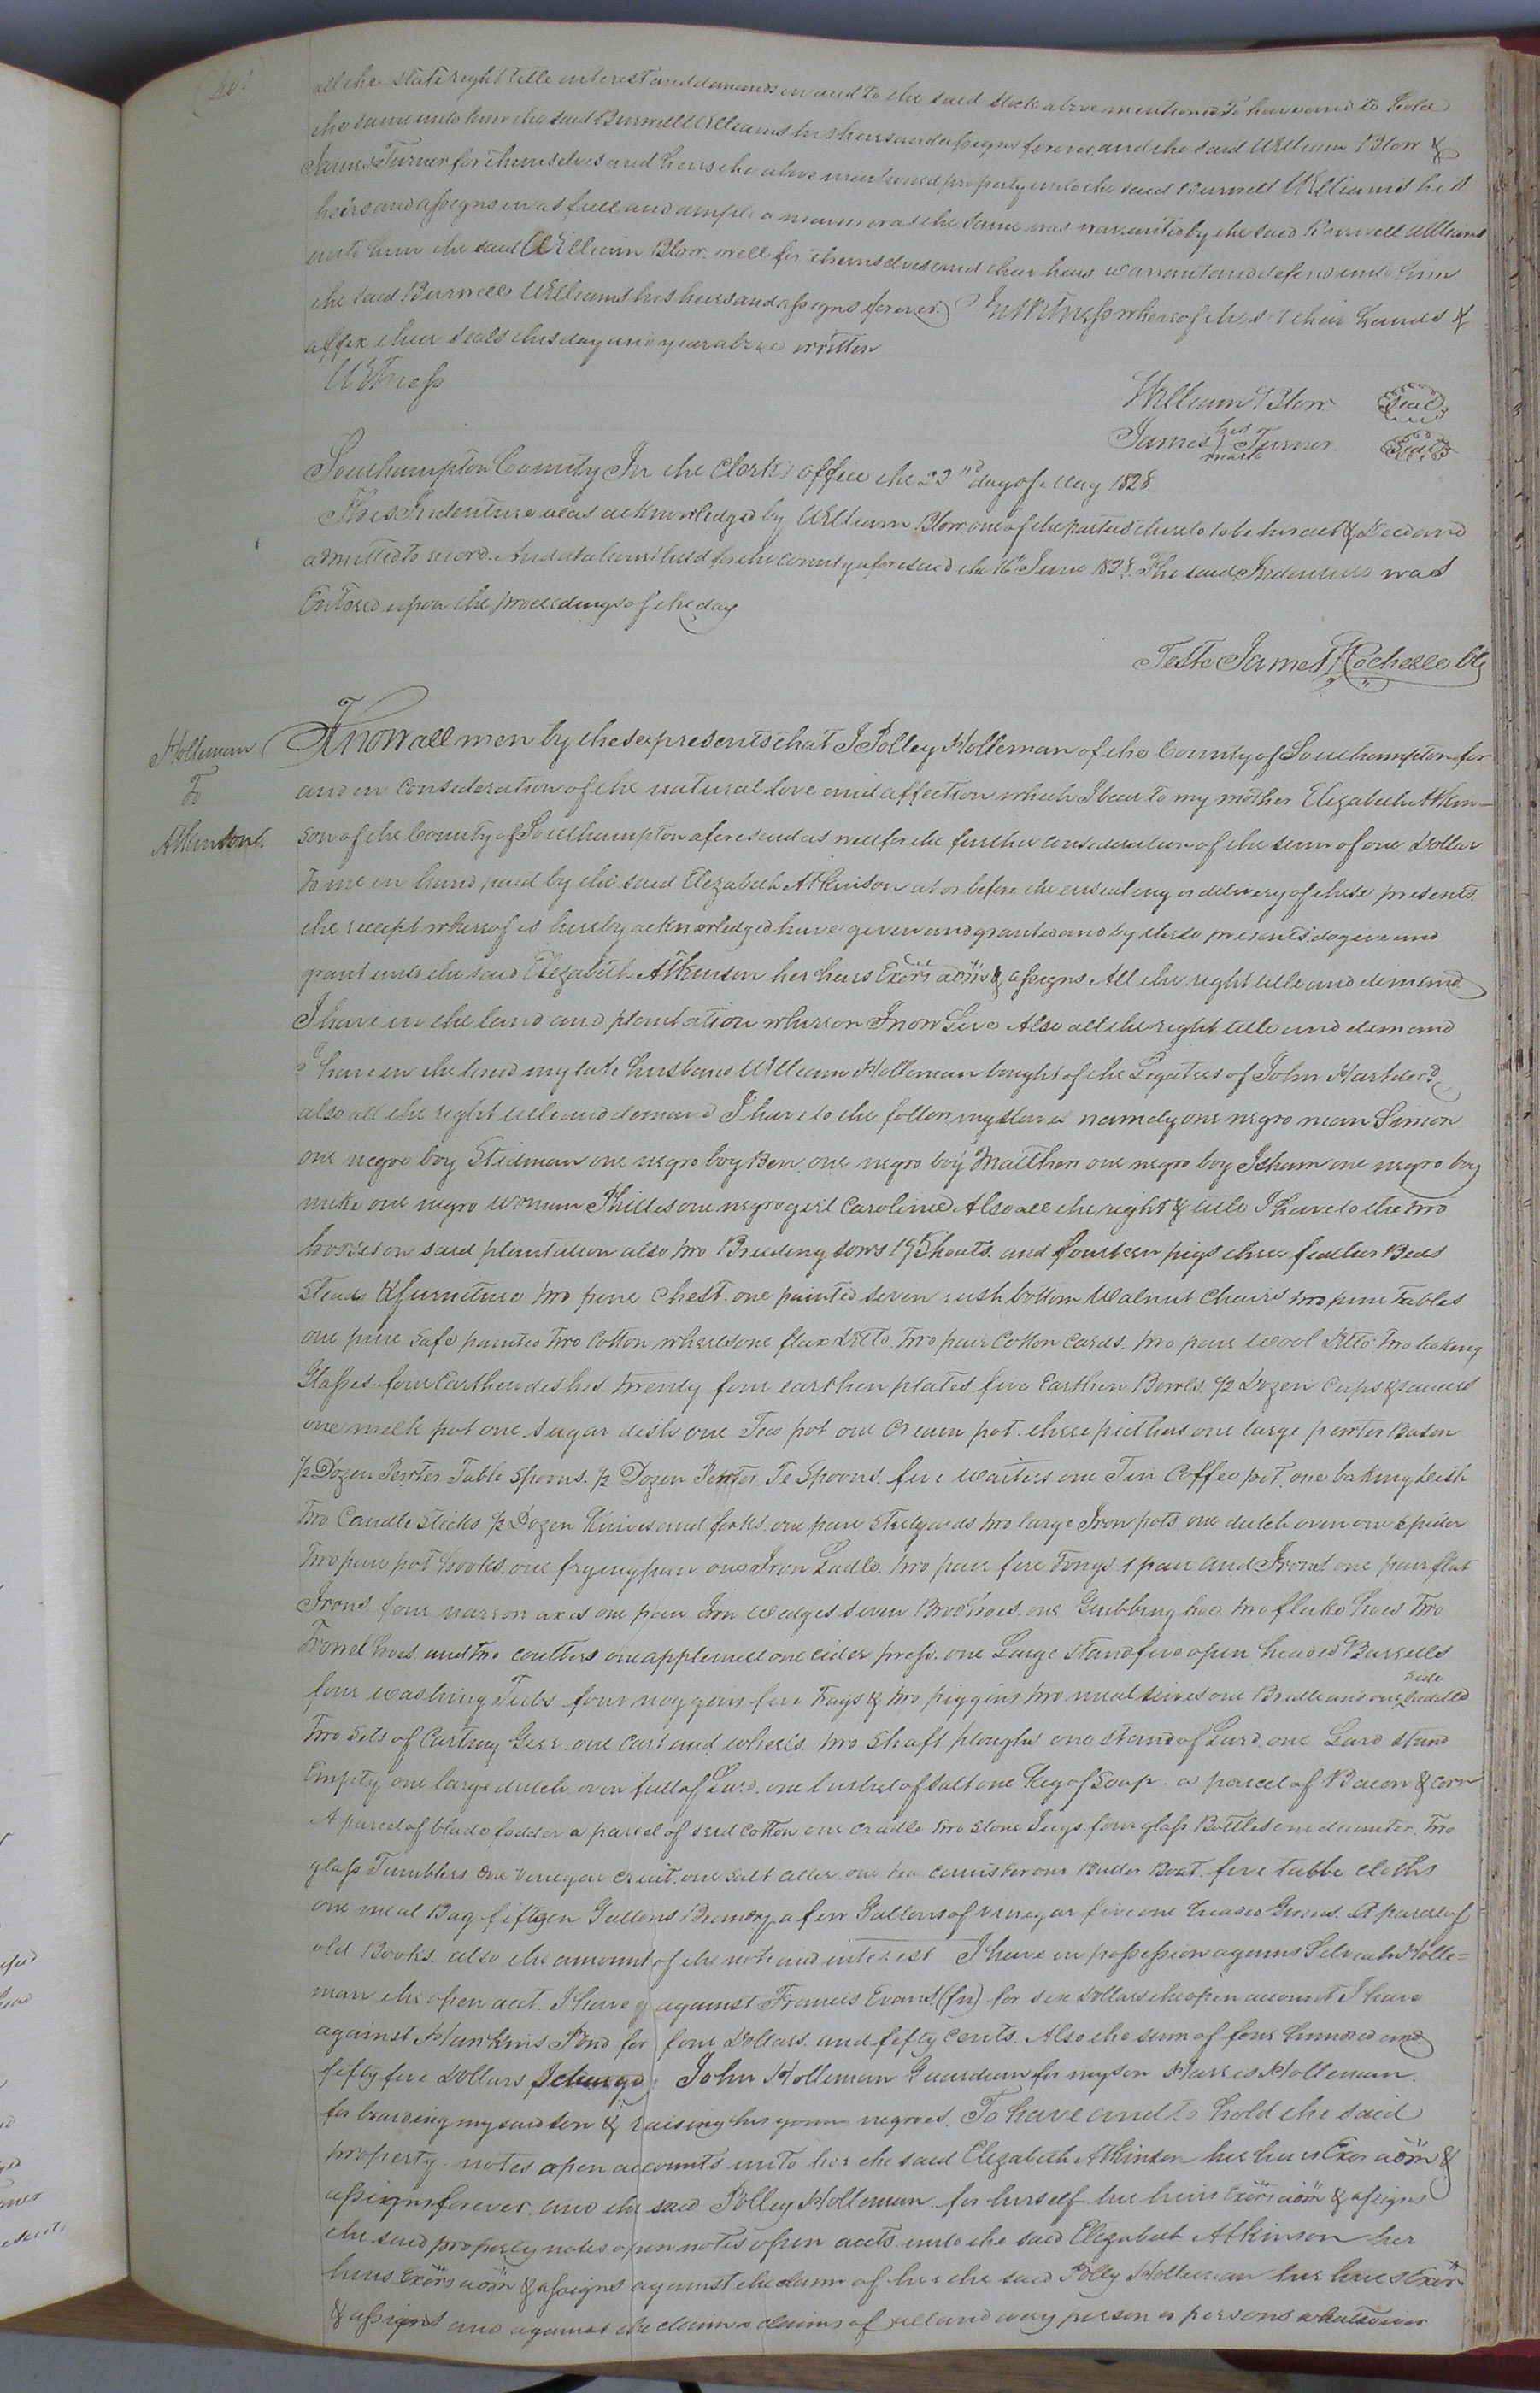 all the state right title interest and demands in and to the said stock above mentioned To have and to hold
the same unto him the said Burwell Williams his heirs and assigns forever and the said William Blow &
James Turner for themselves and heirs the above mentioned property unto the said Burwell Williams his
heirs and assigns in as full and ample a manner as the same was warranted by the said Burwell Williams
unto him the said William Blow will for themselves and their heirs warrant and defend unto him
the said Burwell Williams his heirs and assigns forever In Witness whereof the set their hands &
affix their seals this day and year above written
Witness
William Blow Seal
James his mark Turner Seal
Southampton County In the Clerk's office the 22nd day of May 1828
This Indenture was acknowledged by William Blow one of the parties thereto to be his act & Deed and
admitted to record. And at a Court held for the county aforesaid the 16th June 1828. The said Indenture was
Entered upon the proceedings of the day
Teste James Rochelle Clk
Holleman
To
Atkinson
Know all men by these presents that I Polley Holleman of the County of Southampton for
and in consideration of the natural love and affection which I bear to my mother Elizabeth Atkin-
son of the County of Southampton aforesaid as well for the further consideration of the sum of one Dollar
To me in hand paid by the said Elizabeth Atkinson at or before the ensealing or delivery of these presents
the receipt whereof is hereby acknowledged have given and granted and by these presents do give and
grant unto the said Elizabeth Atkinson her heirs Exors adm & assigns All the right title and demand
I have in the land and plantation whereon I now Live Also all the right title and demand
I have in the land my late husband William Holleman bought of the Legatees of John Hart decd
also all the right title and demand I have to the following slaves namely one negro man Simon
one negro boy Stedman one negro boy Ben, one negro boy Matthew one negro boy Isham one negro boy
mike one negro woman Phillis one negro girl Caroline Also all the right & title I have to the two
horses on said plantation also two Breeding sows 19 Shoats and fourteen pigs three feather Beds
Steads & furniture two pine Chest one painted seven rush bottom Walnut Chairs two pine Tables
one pine Safe painted Two Cotton wheels one flax Ditto Two pair Cotton Cards. two pair Wool Ditto Two looking
Glasses four Earthen dishes twenty four earthen plates five Earthen Bowls 1/2 Dozen Cups & saucers
one milk pot one sugar dish one Tea pot one Cream pot three pitchers one large pewter Bason
1/2 Dozen Pewter Table Spoons. 1/2 Dozen Pewter Te Spoons five waiters one Tin Coffee pot one baking dish
two Candle Sticks 1/2 Dozen Knives and forks one pair Steelyards two large Iron pots one dutch oven one Spider
Two pair pot hooks one frying pan one Iron Ladle two pair fire Tongs 1 pair and Irons one pair flat
Irons four narrow axes one pair Iron Wedges seven Brod hoes one Grubbing hoe two fluke hoes Two
Trowel hoes and two coulters one apple mill one cider press. one Large Stand five open headed Barrells
four washing Tubs four noggens five Trays & two piggins two meal seives one Bridle and one side Saddle
Two Sets of Carting Geer. one Cart and wheels. two Shaft ploughs one stand of Lard one Lard stand
Empty one large dutch oven full of Lard. one bushel of salt one Keg of Soap. a parcel of Bacon & corn
A parcel of blade fodder a parcel of seed Cotton one Cradle two Stone Jugs four glass Bottles one decanter. Two
glass Tumblers One Vinegar Cruit. one salt celler one tea cannister one Butter Boat five table cloths
one meal Bag fifteen Gallons Brandy a few Gallons of vinegar five one headed A parcel of
old Books also the amount of the note and interest I have in possession against Holle=
man the open acct. I have against Francis Evans for six dollars the open account I have
against Hawkins Pond for four Dollars and fifty cents. Also the sum of four hundred and
fifty five Dollars I charge John Holleman Guardian for my son Harris Holleman
for boarding my said son & raising his young negroes. To have and to hold the said
property notes open accounts unto her the said Elizabeth Atkinson her heirs Exor adm &
assigns forever, and the said Polley Holleman for herself her heirs Exors adm & assigns
the said property notes open notes open accts unto the said Elizabeth Atkinson her
heirs Exors adm & assigns against the claim of her the said Polly Holleman her heirs Exor
& assigns and against the claim or claims of all and every person or persons whatsoever